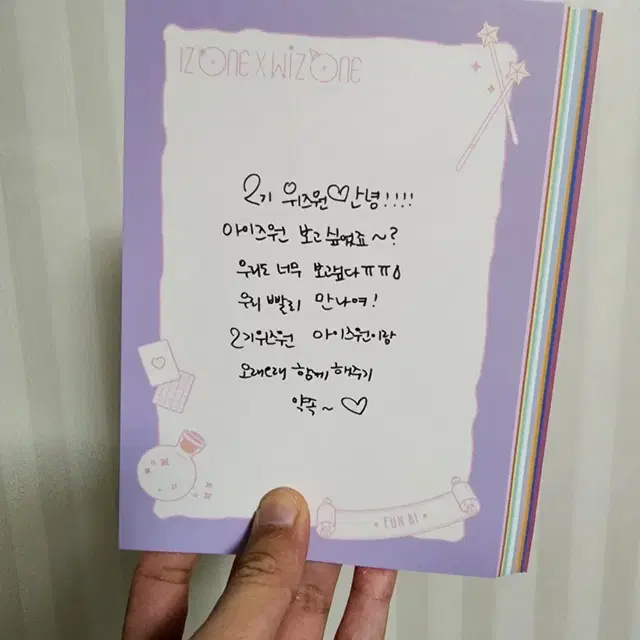 IZONE X WIZONE
2기 위즈원♡안녕!!!!
아이즈원 보고싶었죠~?
우리도 너무 보고싶다ㅠㅠ
우리 빨리 만나여!
2기위즈원 아이즈원이랑
오래오래 함께 해주기
약속~♡
EUN BI